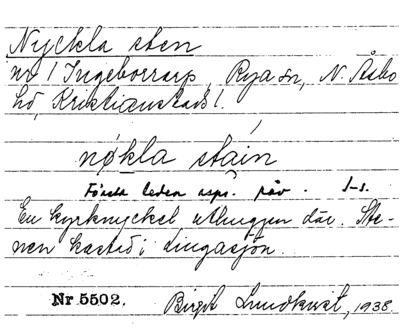 Nyckla sten
nr 1 Ingeborrarp, Rya sn, N. Åsbo
hd, Kristianstads l.
nøkla stáin
Första leden resp. páv. I-s.
En kyrknyckel uthuggen där. Ste-
nen kastad i Lingasjön.
Nr 5502. Birgit Lundkvist, 1938.